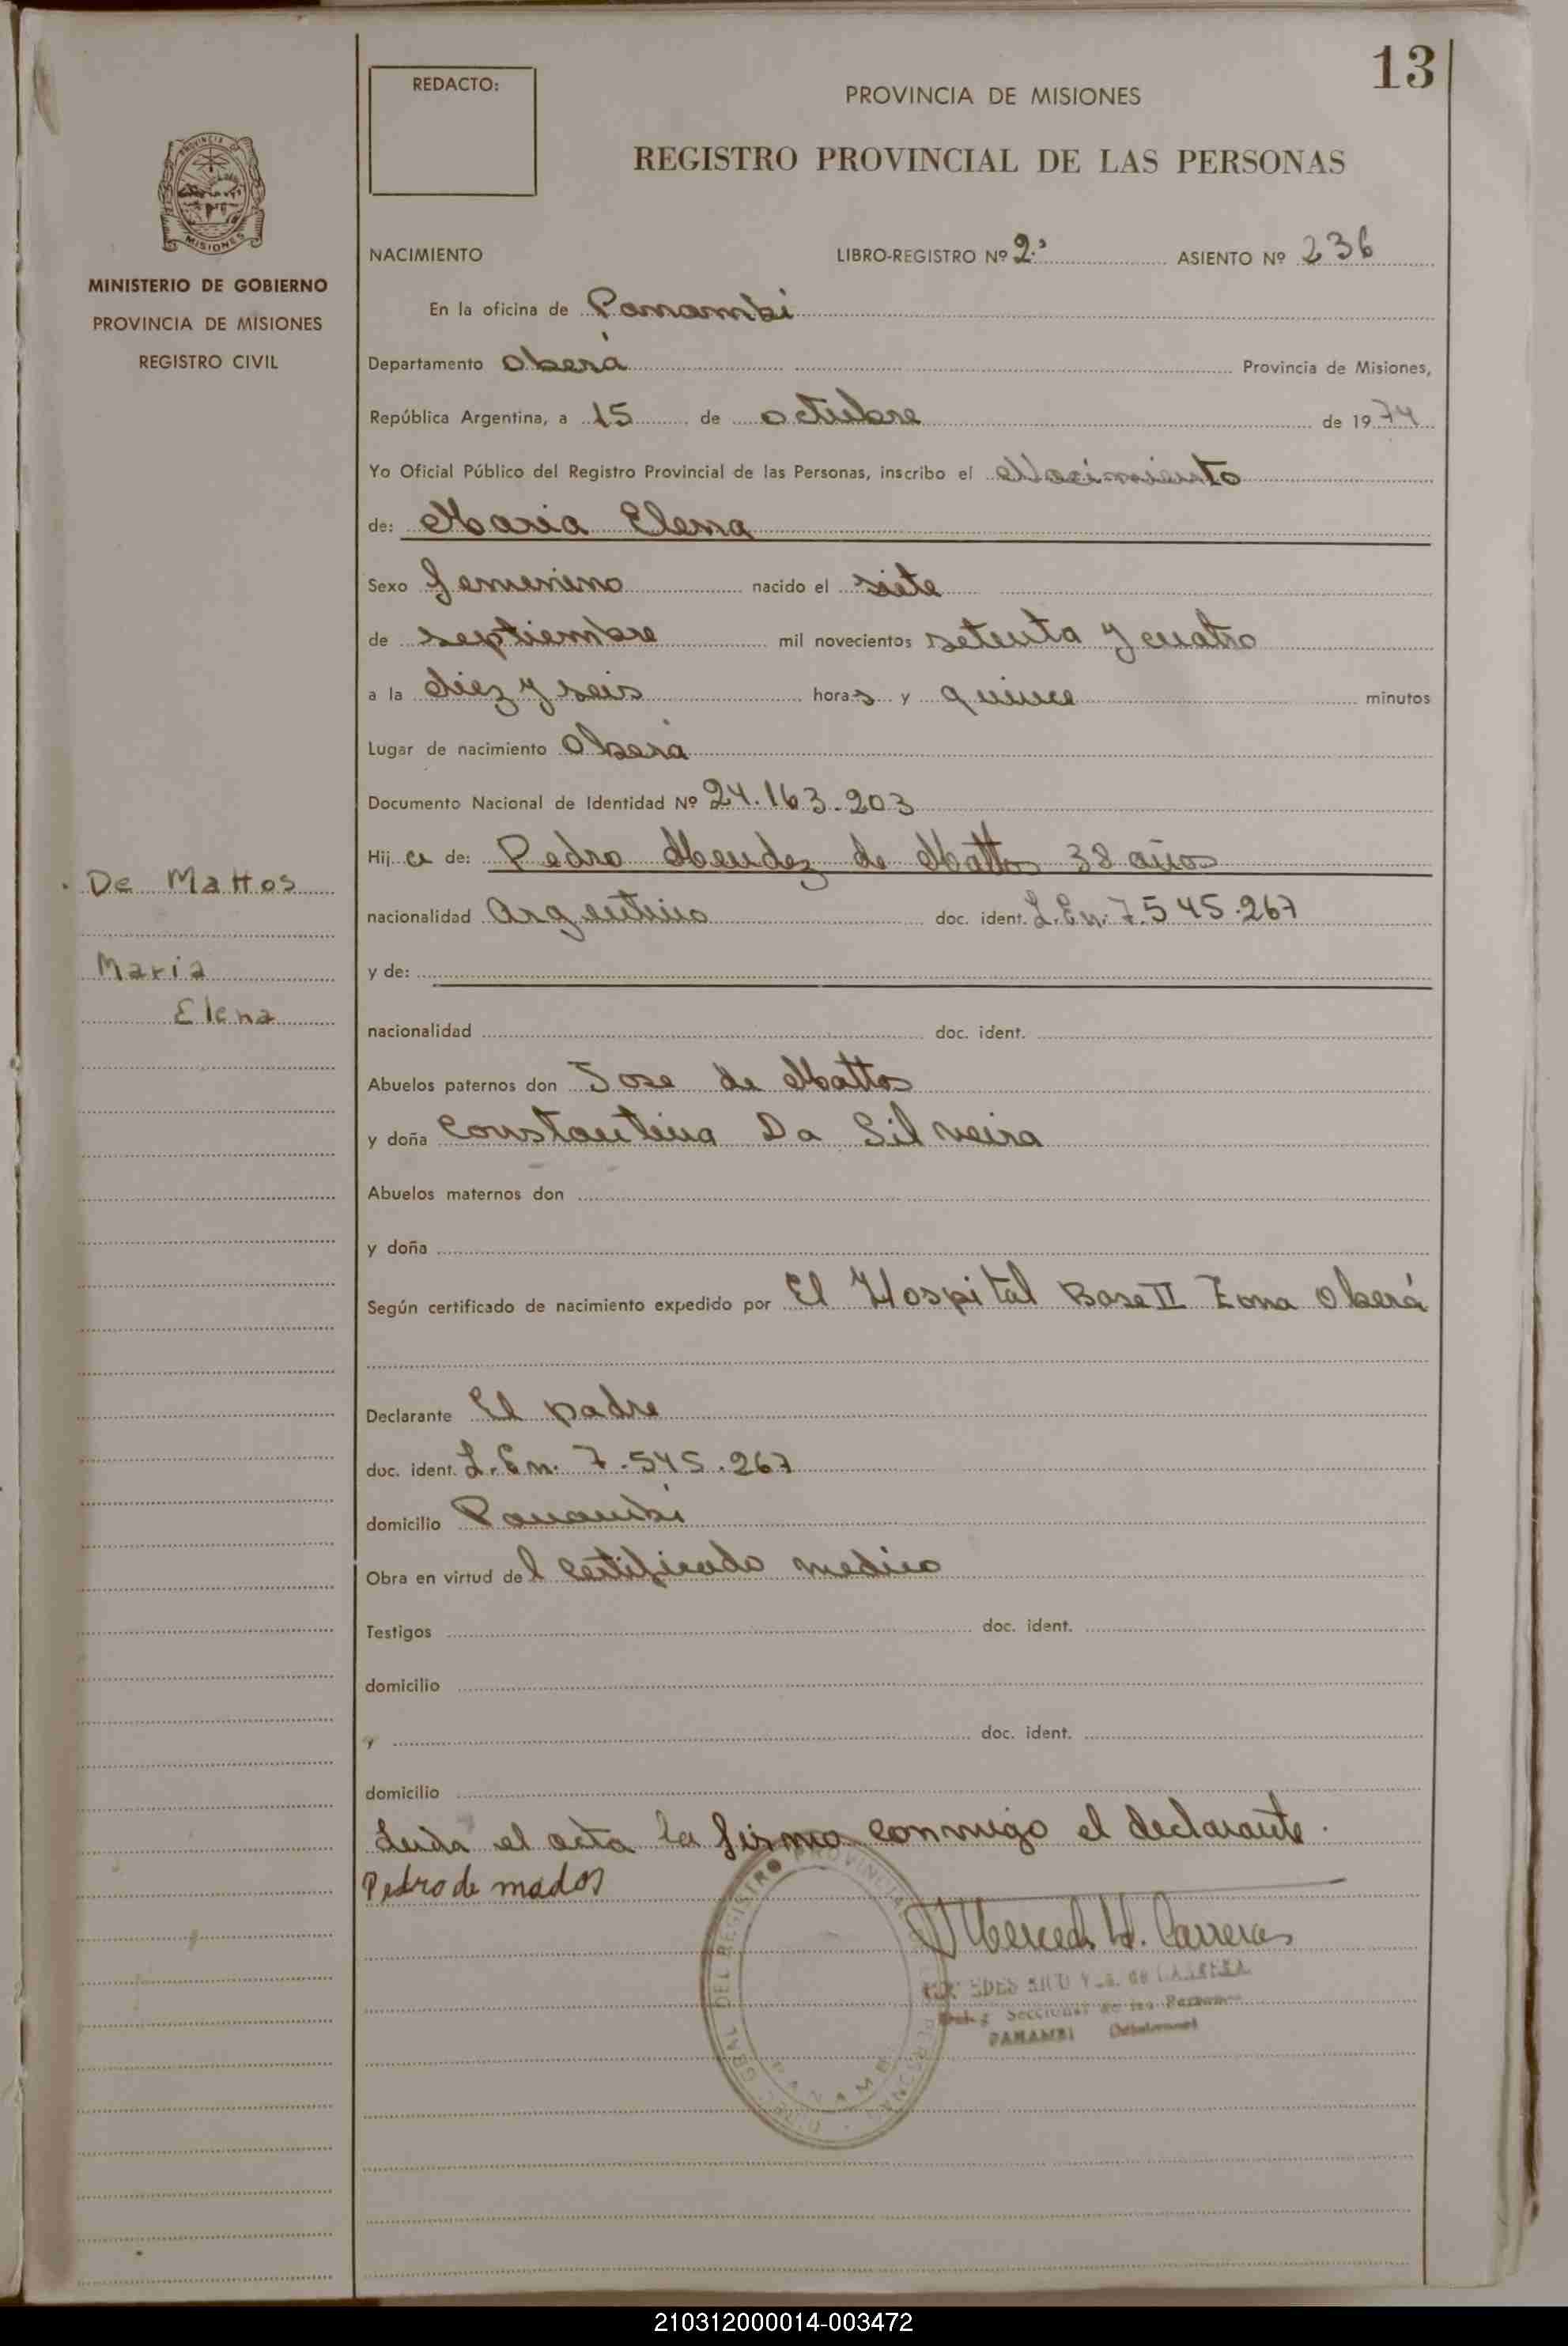 13
REDACTO:
PROVINCIA DE MISIONES
REGISTRO PROVINCIAL DE LAS PERSONAS
PROVINCIA
MISIONES
MINISTERIO DE GOBIERNO
PROVINCIA DE MISIONES
REGISTRO CIVIL
NACIMIENTO LIBRO-REGISTRO Nº 2º ASIENTO Nº 236
En la oficina de Panambi
Departamento Oberá Provincia de Misiones,
República Argentina, a 15 de octubre de 1974
Yo Oficial Público del Registro Provincial de las Personas, inscribo el Nacimiento
de: Maria Elena
Sexo femenino nacido el siete
de septiembre mil novecientos setenta y cuatro
a la diez y seis horas y quince minutos
Lugar de nacimiento Oberá
Documento Nacional de Identidad Nº 24.163.203
Hija de: Pedro Mendez de Mattos 38 años
De Mattos
nacionalidad Argentino doc. ident. L.En. 7.545.267
Maria
y de:
Elena
nacionalidad doc. ident.
Abuelos paternos don Jose de Mattos
y doña Constantina Da Silveira
Abuelos maternos don
y doña
Según certificado de nacimiento expedido por El Hospital Base II Zona Oberá
Declarante El padre
doc. ident. L.En. 7.545.267
domicilio Panambi
Obra en virtud del certificado medico
Testigos doc. ident.
domicilio
y doc. ident.
domicilio
Leida el acta la firma conmigo el declarante.
Pedro de mados
DEL REGISTRO PROVINCIAL
PERSONAS
PANAMBI
Mercedes Carrera
Seccional de las Personas
PANAMBI
210312000014-003472